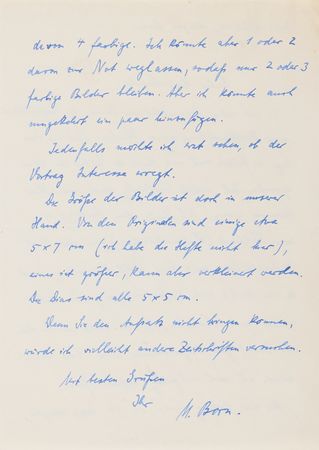 davon 4 farbige. Ich könnte aber 1 oder 2
davon zur Not weglassen, sodaß nur 2 oder 3
farbige Bilder bleiben. Aber ich könnte auch
umgekehrt ein paar hinzufügen.
Jedenfalls möchte ich erst sehen, ob der
Vortrag Interesse erregt.
Die Größe der Bilder ist doch in unserer
Hand. Von den Originalen sind einige etwa
5 x 7 cm (ich habe die Hefte nicht hier),
eines ist größer, kann aber verkleinert werden.
Die Dias sind alle 5 x 5 cm.
Wenn Sie den Aufsatz nicht bringen können,
würde ich vielleicht andere Zeitschriften versuchen.
Mit besten Grüßen
Ihr
M. Born.